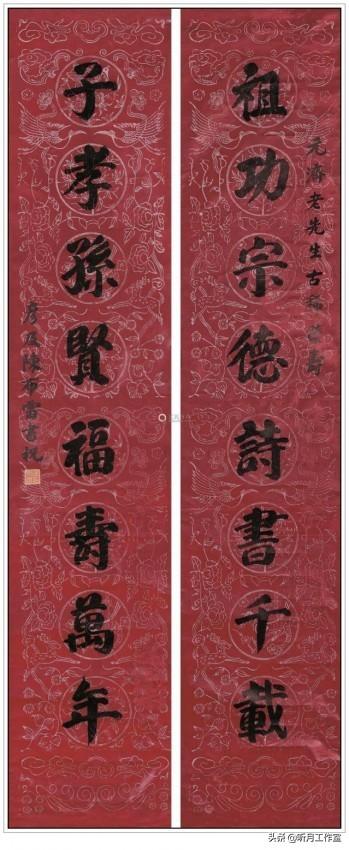 元濟老先生古稀榮壽
祖功宗德詩書千載
子孝孫賢福壽萬年
彦及陳布雷書祝
头条 @听月工作室